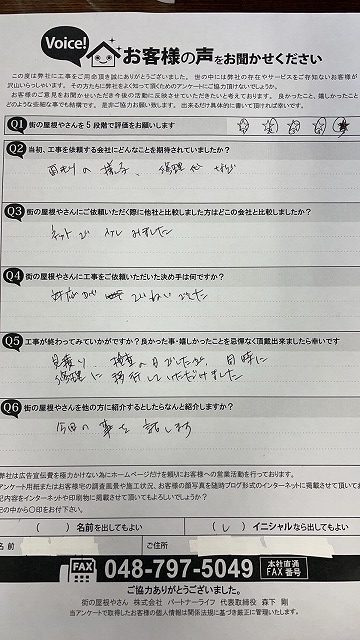 Voice!
お客様の声をお聞かせください
この度は弊社に工事をご用命頂き誠にありがとうございました。世の中には弊社の存在やサービスをご存知ないお客様が
沢山いらっしゃいます。その方たちに弊社をよく知って頂くためのアンケートにご協力頂けないでしょうか。
お客様のご意見をお聞かせいただき今後の活動に反映させていただきたいと考えております。良かったこと、嬉しかったこと
どのような些細な事でも結構です。是非ご協力お願い致します。出来るだけ具体的に書いて頂ければ幸いです。
Q1 街の屋根やさんを5段階で評価をお願いします
Q2 当初、工事を依頼する会社にどんなことを期待されていましたか?
の様子、修理 など
Q3 街の屋根やさんにご依頼いただく際に他社と比較しました方はどこの会社と比較しましたか?
ネットで みました
Q4 街の屋根やさんに工事をご依頼いただいた決め手は何ですか?
対応が ていねいでした
Q5 工事が終わってみていかがですか?良かった事・嬉しかったことを忌憚なく頂戴出来ましたら幸いです
見積り、検査の日でしたが、同時に
修理に移行していただけました
Q6 街の屋根やさんを他の方に紹介するとしたらなんと紹介しますか?
今回の事を話します
弊社は広告宣伝費を極力かけない為にホームページだけを頼りにお客様への営業活動を行っております。
アンケート用紙またはお客様宅の調査風景や施工状況、お客様の顔写真を随時ブログ形式のインターネットに掲載させて頂いており
記内容をインターネットや印刷物に掲載させて頂いてもよろしいでしょうか?
記の中から〇印をお付下さい。
( ) 名前を出してもよい ( ) イニシャルなら出してもよい
名前 ご住所
FAX 048-797-5049 本社直通 FAX番号
ご協力ありがとうございました。
街の屋根やさん 株式会社 パートナーライフ 代表取締役 森下 剛
当アンケートで取得したお客様の個人情報は関係法規に基づき厳正に管理いたします。